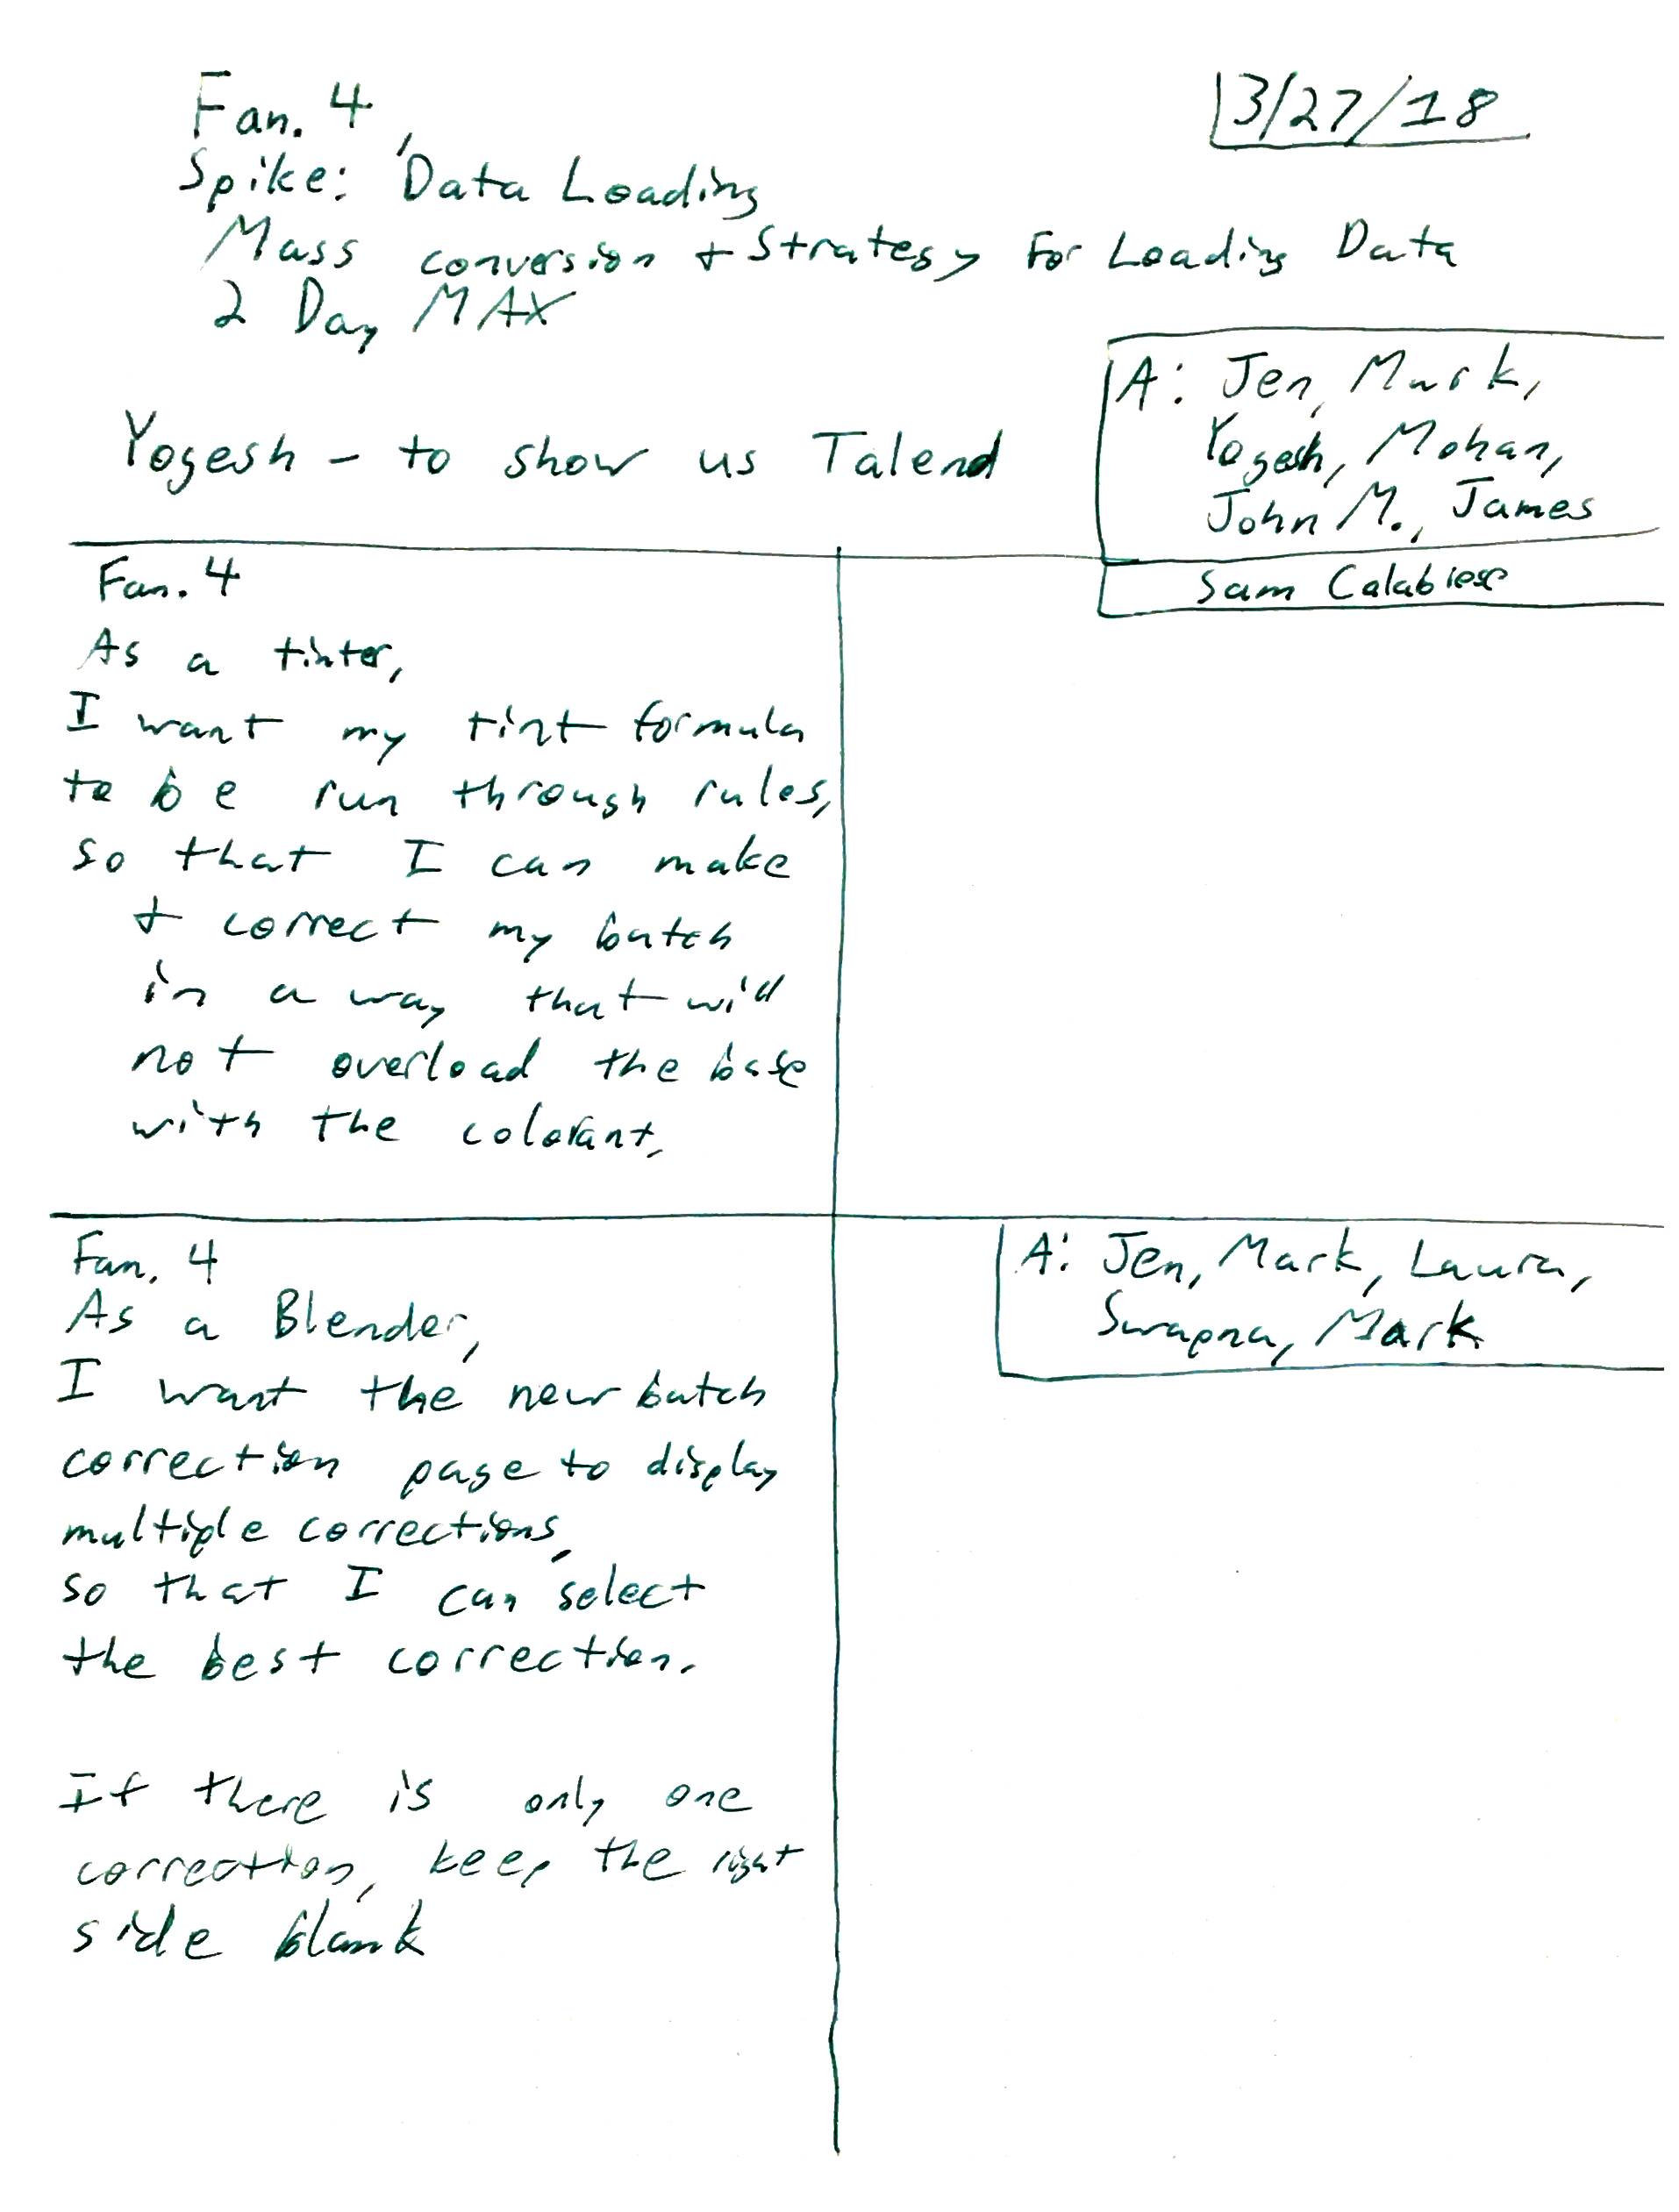 Fan. 4
3/27/18
Spike: Data Loading
Mass conversion + Strategy For Loading Data
2 Day MAX
A: Jen, Mark,
Yogesh, Mohan,
John M., James
Yogesh - to show us Talend
Sam Calabrese
Fan. 4
As a tinter,
I want my tint formula
to be run through rules,
so that I can make
+ correct my batch
in a way that will
not overload the base
with the colorant.
Fan. 4
As a Blender,
I want the new batch
correction page to display
multiple corrections,
so that I can select
the best correction.
If there is only one
correction, keep the right
side blank
A: Jen, Mark, Laura,
Swapna, Mark